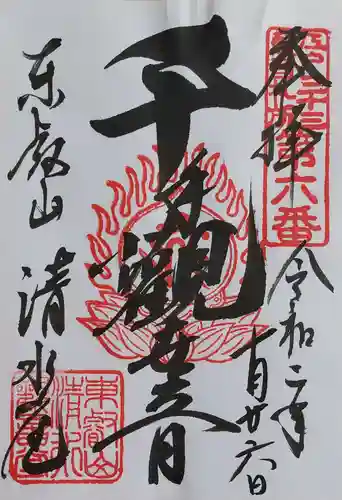 奉拝
第六番
千手觀世音
令和二年
月廿六日
東叡山 清水堂
東叡山